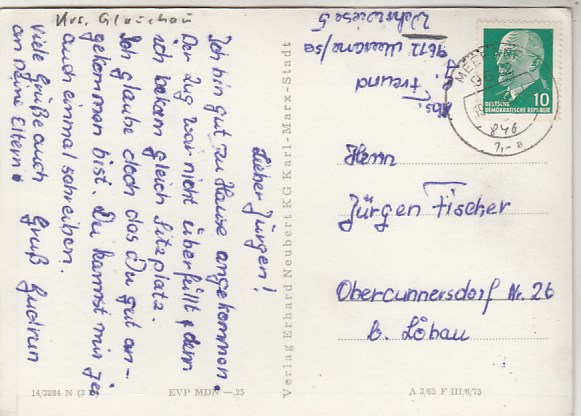 Krs. Glauchau
Lieber Jürgen!
Ich bin gut zu Hause angekommen.
Der Zug war nicht überfüllt, denn
ich bekam gleich Sitzplatz.
Ich glaube doch das Du gut an-
gekommen bist. Du kannst mir ja
auch einmal schreiben.
Viele Grüße auch Gruß Gudrun
an deine Eltern.
Verlag Erhard Neubert KG Karl-Marx-Stadt
Abs. Freund
9612 Meerane/Sa
Wehrwiese 5
MEER
846
DEUTSCHE
DEMOKRATISCHE REPUBLIK
10
Herrn
Jürgen Fischer
Obercunnersdorf Nr. 26
b. Löbau
14/3884 N
EVP MDN —,25
A 3/65 F III/6/75